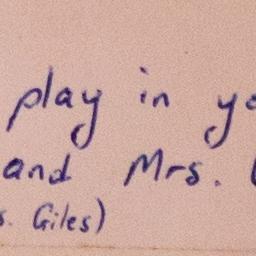 play in
and Mrs.
s. Giles)